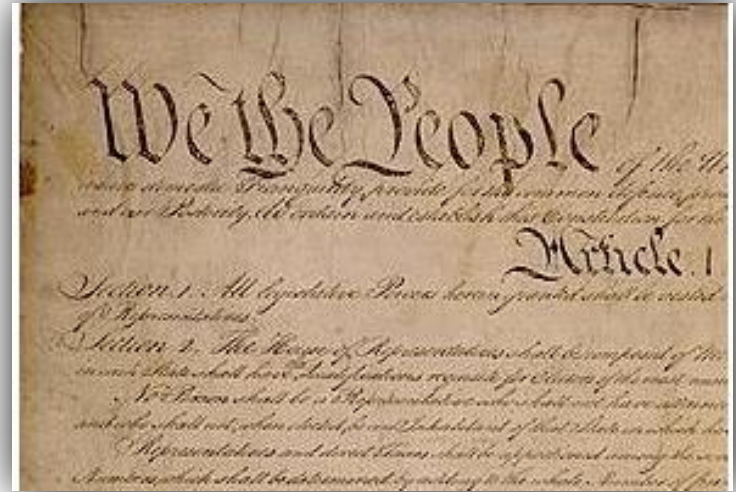 We the People of the Un
insure domestic Tranquility, provide for the common defence, prom
and our Posterity, do ordain and establish this Constitution for the
Article. I.
Section. 1. All legislative Powers herein granted shall be vested
of Representatives.
Section. 2. The House of Representatives shall be composed of Mem
in each State shall have Qualifications requisite for Electors of the most num
No Person shall be a Representative who shall not have attained
and who shall not, when elected, be an Inhabitant of that State in which he
Representatives and direct Taxes shall be apportioned among the seve
Numbers, which shall be determined by adding to the whole Number of free